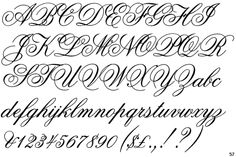 ABCDEFGHI
JKLMNOPQR
STUVWXYZabc
defghijklmnopqrstuvwxyz
&1234567890($£.,!?)
57